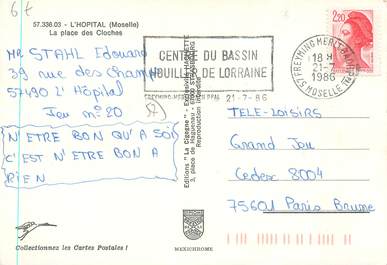 67
57.336.03 - L'HOPITAL (Moselle)
La place des Cloches
MR STAHL Edouard
39 rue des Champs
57490 L'Hôpital
Jeu n° 20
N'ETRE BON QU'A SOI
C'EST N'ETRE BON A
RIEN
Collectionnez les Cartes Postales !
Editions "La Cigogne" - Editions HACHETTE
3, place de Haguenau - 67000 STRASBOURG
Reproduction interdite
MEXICHROME
CENTRE DU BASSIN
HOUILLER DE LORRAINE
FREYMING-MERLEBACH PPAL 21-7-86
57 FREYMING MERLEBACH
18 H
21-7
1986
MOSELLE
2,20
TELE-LOISIRS
Grand Jeu
Cedex 8004
75601 Paris Brune